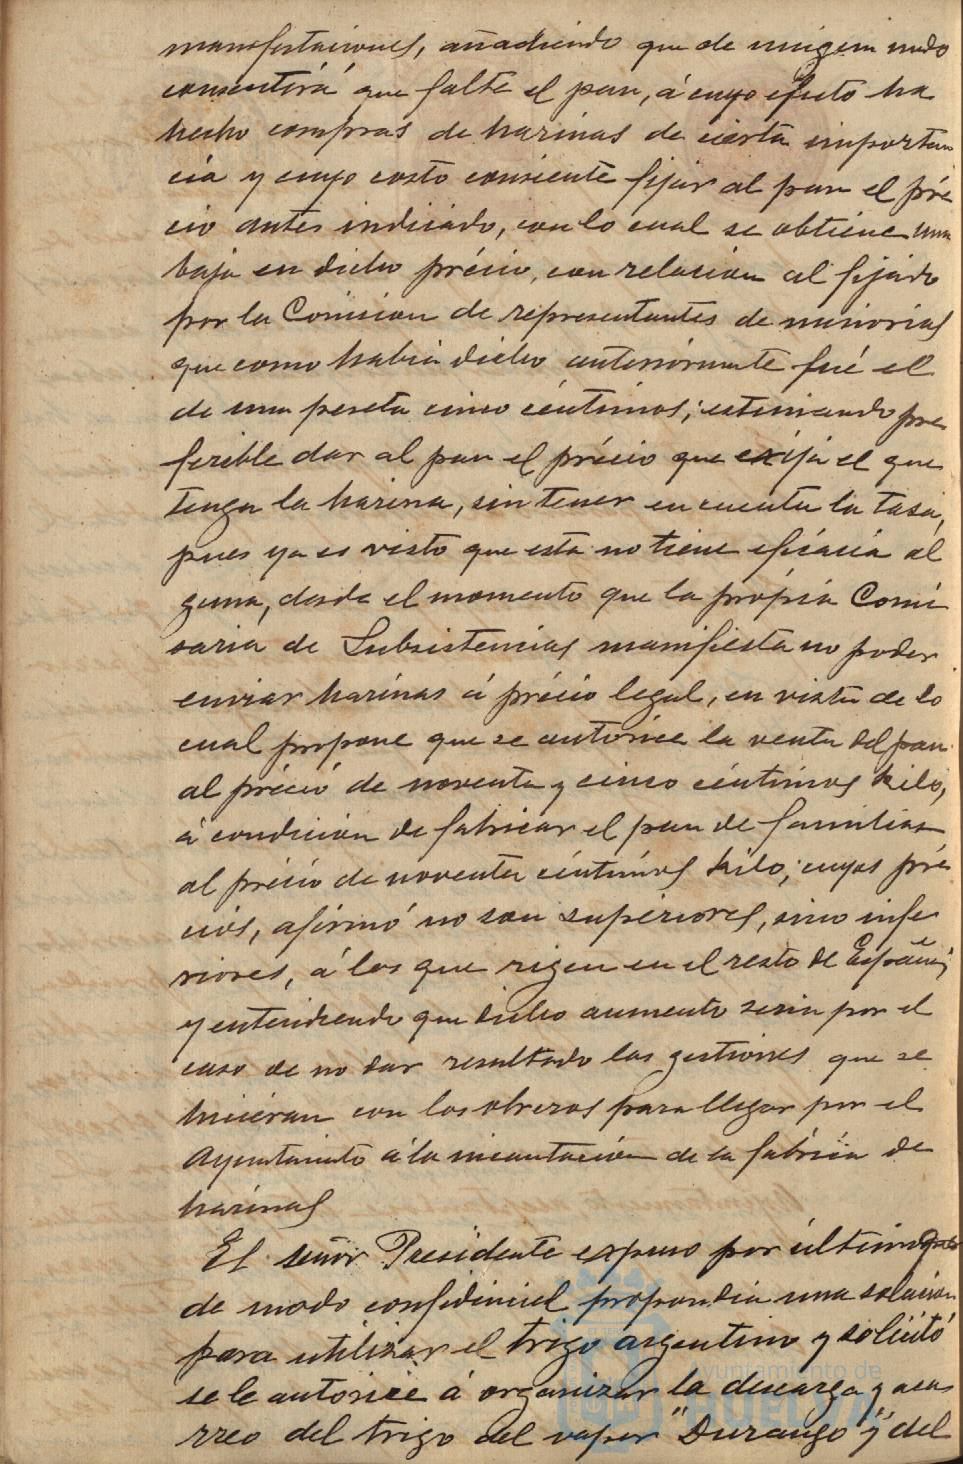 manifestaciones, añadiendo que de ningun modo
consentirá que falte el pan, á cuyo efecto ha
hecho compras de harinas de cierta importan
cia y cuyo costo consiente fijar al pan el pre
cio antes indicado, con lo cual se obtiene una
baja en dicho précio, con relacion al fijado
por la Comision de representantes de minorias
que como habia dicho anteriormente fué el
de una peseta cinco céntimos; estimando pre
ferible dar al pan el précio que exija el que
tenga la harina, sin tener en cuenta la tasa,
pues ya es visto que esta no tiene eficácia al
guna, desde el momento que la própia Comi
saria de Subsistencias manifiesta no poder
enviar harinas á précio legal, en vista de lo
cual propone que se autorice la venta del pan
al précio de noventa y cinco céntimos kilo,
á condicion de fabricar el pan de familias
al précio de noventa céntimos kilo; cuyos pré
cios, afirmó no son superiores, sino infe
riores, á los que rigen en el resto de España,
y entendiendo que dicho aumento seria por el
caso de no dar resultado las gestiones que se
hicieran con los obreros para llegar por el
Ayuntamiento á la incautación de la fabrica de
harinas
El señor Presidente expuso por último que
de modo confidencial propondia una solucion
para utilizar el trigo argentino y solicitó
se le autorice á organizar la descarga y aca
rreo del trigo del vapor "Durango" y del
Ayuntamiento de
HUELVA